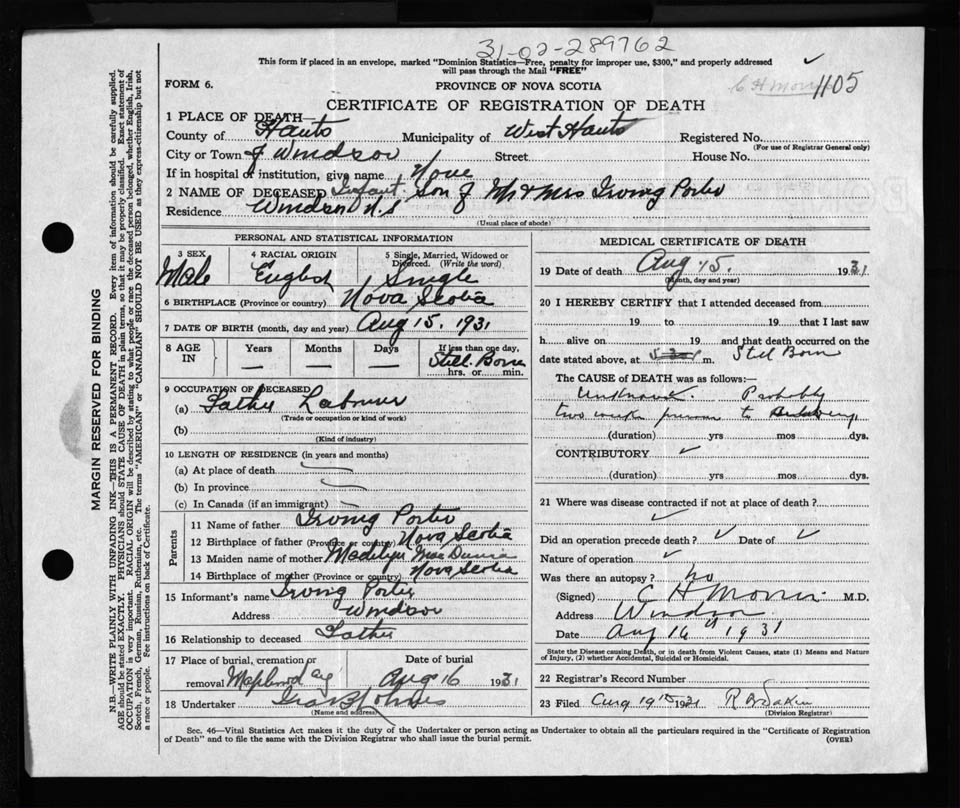 31-02-289762
This form if placed in an envelope, marked "Dominion Statistics—Free, penalty for improper use, $300," and properly addressed
will pass through the Mail "FREE"
C H Morris 1105
FORM 6.
PROVINCE OF NOVA SCOTIA
CERTIFICATE OF REGISTRATION OF DEATH
1 PLACE OF DEATH—
County of Hants Municipality of West Hants Registered No.
(For use of Registrar General only)
City or Town of Windsor Street House No.
If in hospital or institution, give name None
2 NAME OF DECEASED Infant Son of Mr & Mrs Irving Porter
Residence Windsor N.S
(Usual place of abode)
PERSONAL AND STATISTICAL INFORMATION
3 SEX 4 RACIAL ORIGIN 5 Single, Married, Widowed or
Divorced. (Write the word)
Male English Single
6 BIRTHPLACE (Province or country) Nova Scotia
7 DATE OF BIRTH (month, day and year) Aug 15, 1931
8 AGE IN Years Months Days If less than one day,
— — — Still Born
hrs. or min.
9 OCCUPATION OF DECEASED
(a) Father Labourer
(Trade or occupation or kind of work)
(b)
(Kind of industry)
10 LENGTH OF RESIDENCE (in years and months)
(a) At place of death
(b) In province
(c) In Canada (if an immigrant)
Parents
11 Name of father Irving Porter
12 Birthplace of father (Province or country) Nova Scotia
13 Maiden name of mother Madelyn Mac
14 Birthplace of mother (Province or country) Nova Scotia
15 Informant's name Irving Porter
Address Windsor
16 Relationship to deceased Father
17 Place of burial, cremation or Date of burial
removal Maplewood Aug 16 1931
18 Undertaker
(Name and address)
MEDICAL CERTIFICATE OF DEATH
19 Date of death Aug 15. 1931
(Month, day and year)
20 I HEREBY CERTIFY that I attended deceased from
19 to 19 that I last saw
h alive on 19 and that death occurred on
date stated above, at m. Still Born
The CAUSE of DEATH was as follows:—
Unknown. Probably
two weeks previous to delivery
(duration) yrs mos dys.
CONTRIBUTORY ✓
(duration) yrs mos dys.
21 Where was disease contracted if not at place of death?
✓
Did an operation precede death? ✓ Date of ✓
Nature of operation ✓
Was there an autopsy? no
(Signed) C H Morris M.D.
Address Windsor
Date Aug 16th 1931
State the Disease causing Death, or in death from Violent Causes, state (1) Means and Nature
of Injury, (2) whether Accidental, Suicidal or Homicidal.
22 Registrar's Record Number
23 Filed Aug 19th 1931 R B Dakin
(Division Registrar)
Sec. 46—Vital Statistics Act makes it the duty of the Undertaker or person acting as Undertaker to obtain all the particulars required in the "Certificate of Registration
of Death" and to file the same with the Division Registrar who shall issue the burial permit.
(OVER)
MARGIN RESERVED FOR BINDING
N.B.—WRITE PLAINLY WITH UNFADING INK—THIS IS A PERMANENT RECORD. Every item of information should be carefully supplied.
AGE should be stated EXACTLY. PHYSICIANS should STATE CAUSE OF DEATH in plain terms, so that it may be properly classified. Exact statement of
OCCUPATION is very important. RACIAL ORIGIN will be described by stating to what people or race the deceased person belonged, whether English, Irish,
Scotch, French, German, Russian, Ruthenian, etc. The terms "AMERICAN" or "CANADIAN" SHOULD NOT BE USED as they express citizenship but not
a race or people. Fee instructions on back of Certificate.